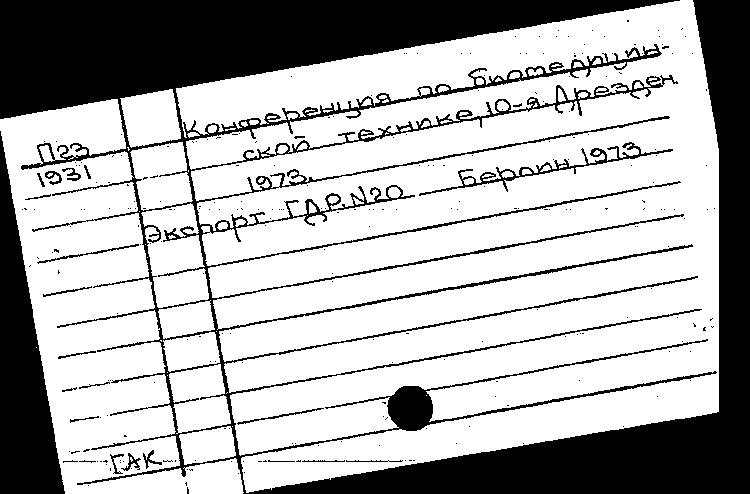 Конференция по биомедицин-
П23 ской технике, 10-я. Дрезден
1931 1973.
Экспорт ГДР. N20 Берлин, 1973
ГАК